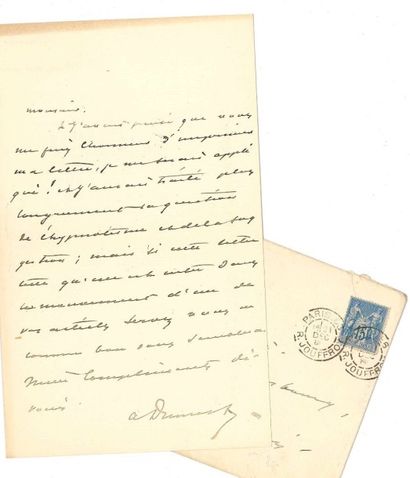 monsieur,
si j'avais pensé que vous
me feriez l'honneur d'imprimer
ma lettre, je me serais appli
qué! et j'aurais traité plus
longuement la question
de l'hypnotisme et de la sug
gestion; mais si cette lettre
telle qu'elle est entre dans
le mouvement d'un de
vos articles servez vous en
comme bon vous semblera
Mille compliments dé
voués
A Dumas f
PARIS
DEC
R. JOUFFROY
15
R. JOUFFROY